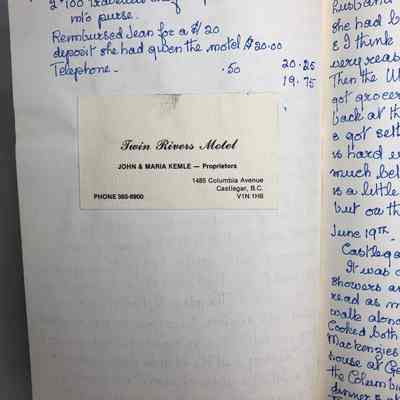 £100 travellers
m/o purse.
Reimbursed Jean for a $20
deposit she had given the motel $20.00
Telephone. .50 20.25
19.75
Twin Rivers Motel
JOHN & MARIA KEMLE — Proprietors
1485 Columbia Avenue
Castlegar, B.C.
PHONE 365-6900 V1N 1H8
husband
she had b
& I think
very reas
Then the W
got grocer
back at th
& got sett
is hard e
much bet
is a little
but on th
June 19th.
Castlega
It was
showers a
read as m
walk alon
Cooked both
Mackenzies
house at
the Columbia
dinner &